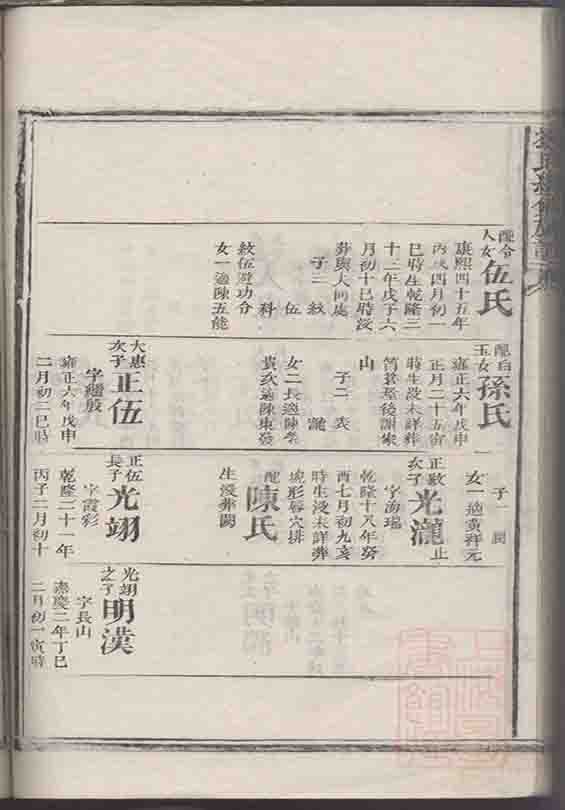 配今
人女
伍氏
康熙四十五年
丙戌四月初一
巳時生乾隆三
十三年戊子六
月初十巳時沒
葬與大同處
子三 紋
伍
科
紋伍避功分
女一適陳五能
配白
玉女
孫氏
雍正六年戊申
正月二十五寅
時生沒未詳葬
屋後謝家
山
子二 表
瀧
女二長適陳榮
黃次適陳東發
大惠
次子
正伍
字繼殷
雍正六年戊申
二月初二巳時
子一 闕
女一適黃祥元
正教
次子
光瀧
止
字海瑞
乾隆十八年癸
酉七月初九亥
時生沒未詳葬
虎形唇穴排
配
陳氏
生沒葬闕
正伍
長子
光翊
字霞彩
乾隆二十一年
丙子二月初十
光翊
之子
明漢
字長山
嘉慶二年丁巳
二月初一寅時